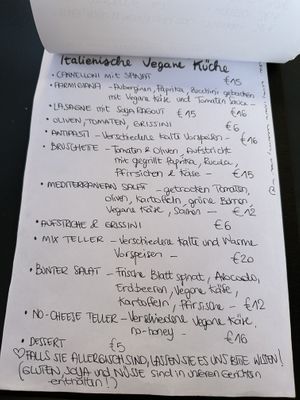 Italienische Vegane Küche
• CANNELLONI mit SPINAT €15
• PARMIGIANA - Auberginen, Paprika, Zucchini gebacken
mit Vegane Käse und Tomaten Sauce - €16
• LASAGNE mit SOJA RAGOUT €15
• OLIVEN, TOMATEN, GRISSINI €6
• ANTIPASTI - Verschiedene Kalte Vorspeisen - €16
• BRUSCHETTE - Tomaten & Oliven, Aufstriche
mit gegrillt Paprika, Rucola,
Pfirsichen & Käse - €15
• MEDITERRANEAN SALAT - getrockten Tomaten,
oliven, Kartoffeln, grüne Bohnen,
Vegane Käse, - €12
• AUFSTRICHE & GRISSINI €6
• MIX TELLER - Verschiedene Kalte und Warme
Vorspeisen - €20
• BUNTER SALAT - Frische Blatt spinat, Avocado,
Erdbeeren, Vegane Käse,
Kartoffeln, Pfirsische - €12
• NO-CHEESE TELLER - Verschiedene Vegane Käse,
no-honey - €16
• DESSERT €5
♡ FALLS SIE ALLERGISCH SIND, LASSEN SIE ES UNS BITTE WISSEN!
(GLUTEN, SOJA UND NÜSSE SIND in unseren Gerichten
enthalten!)